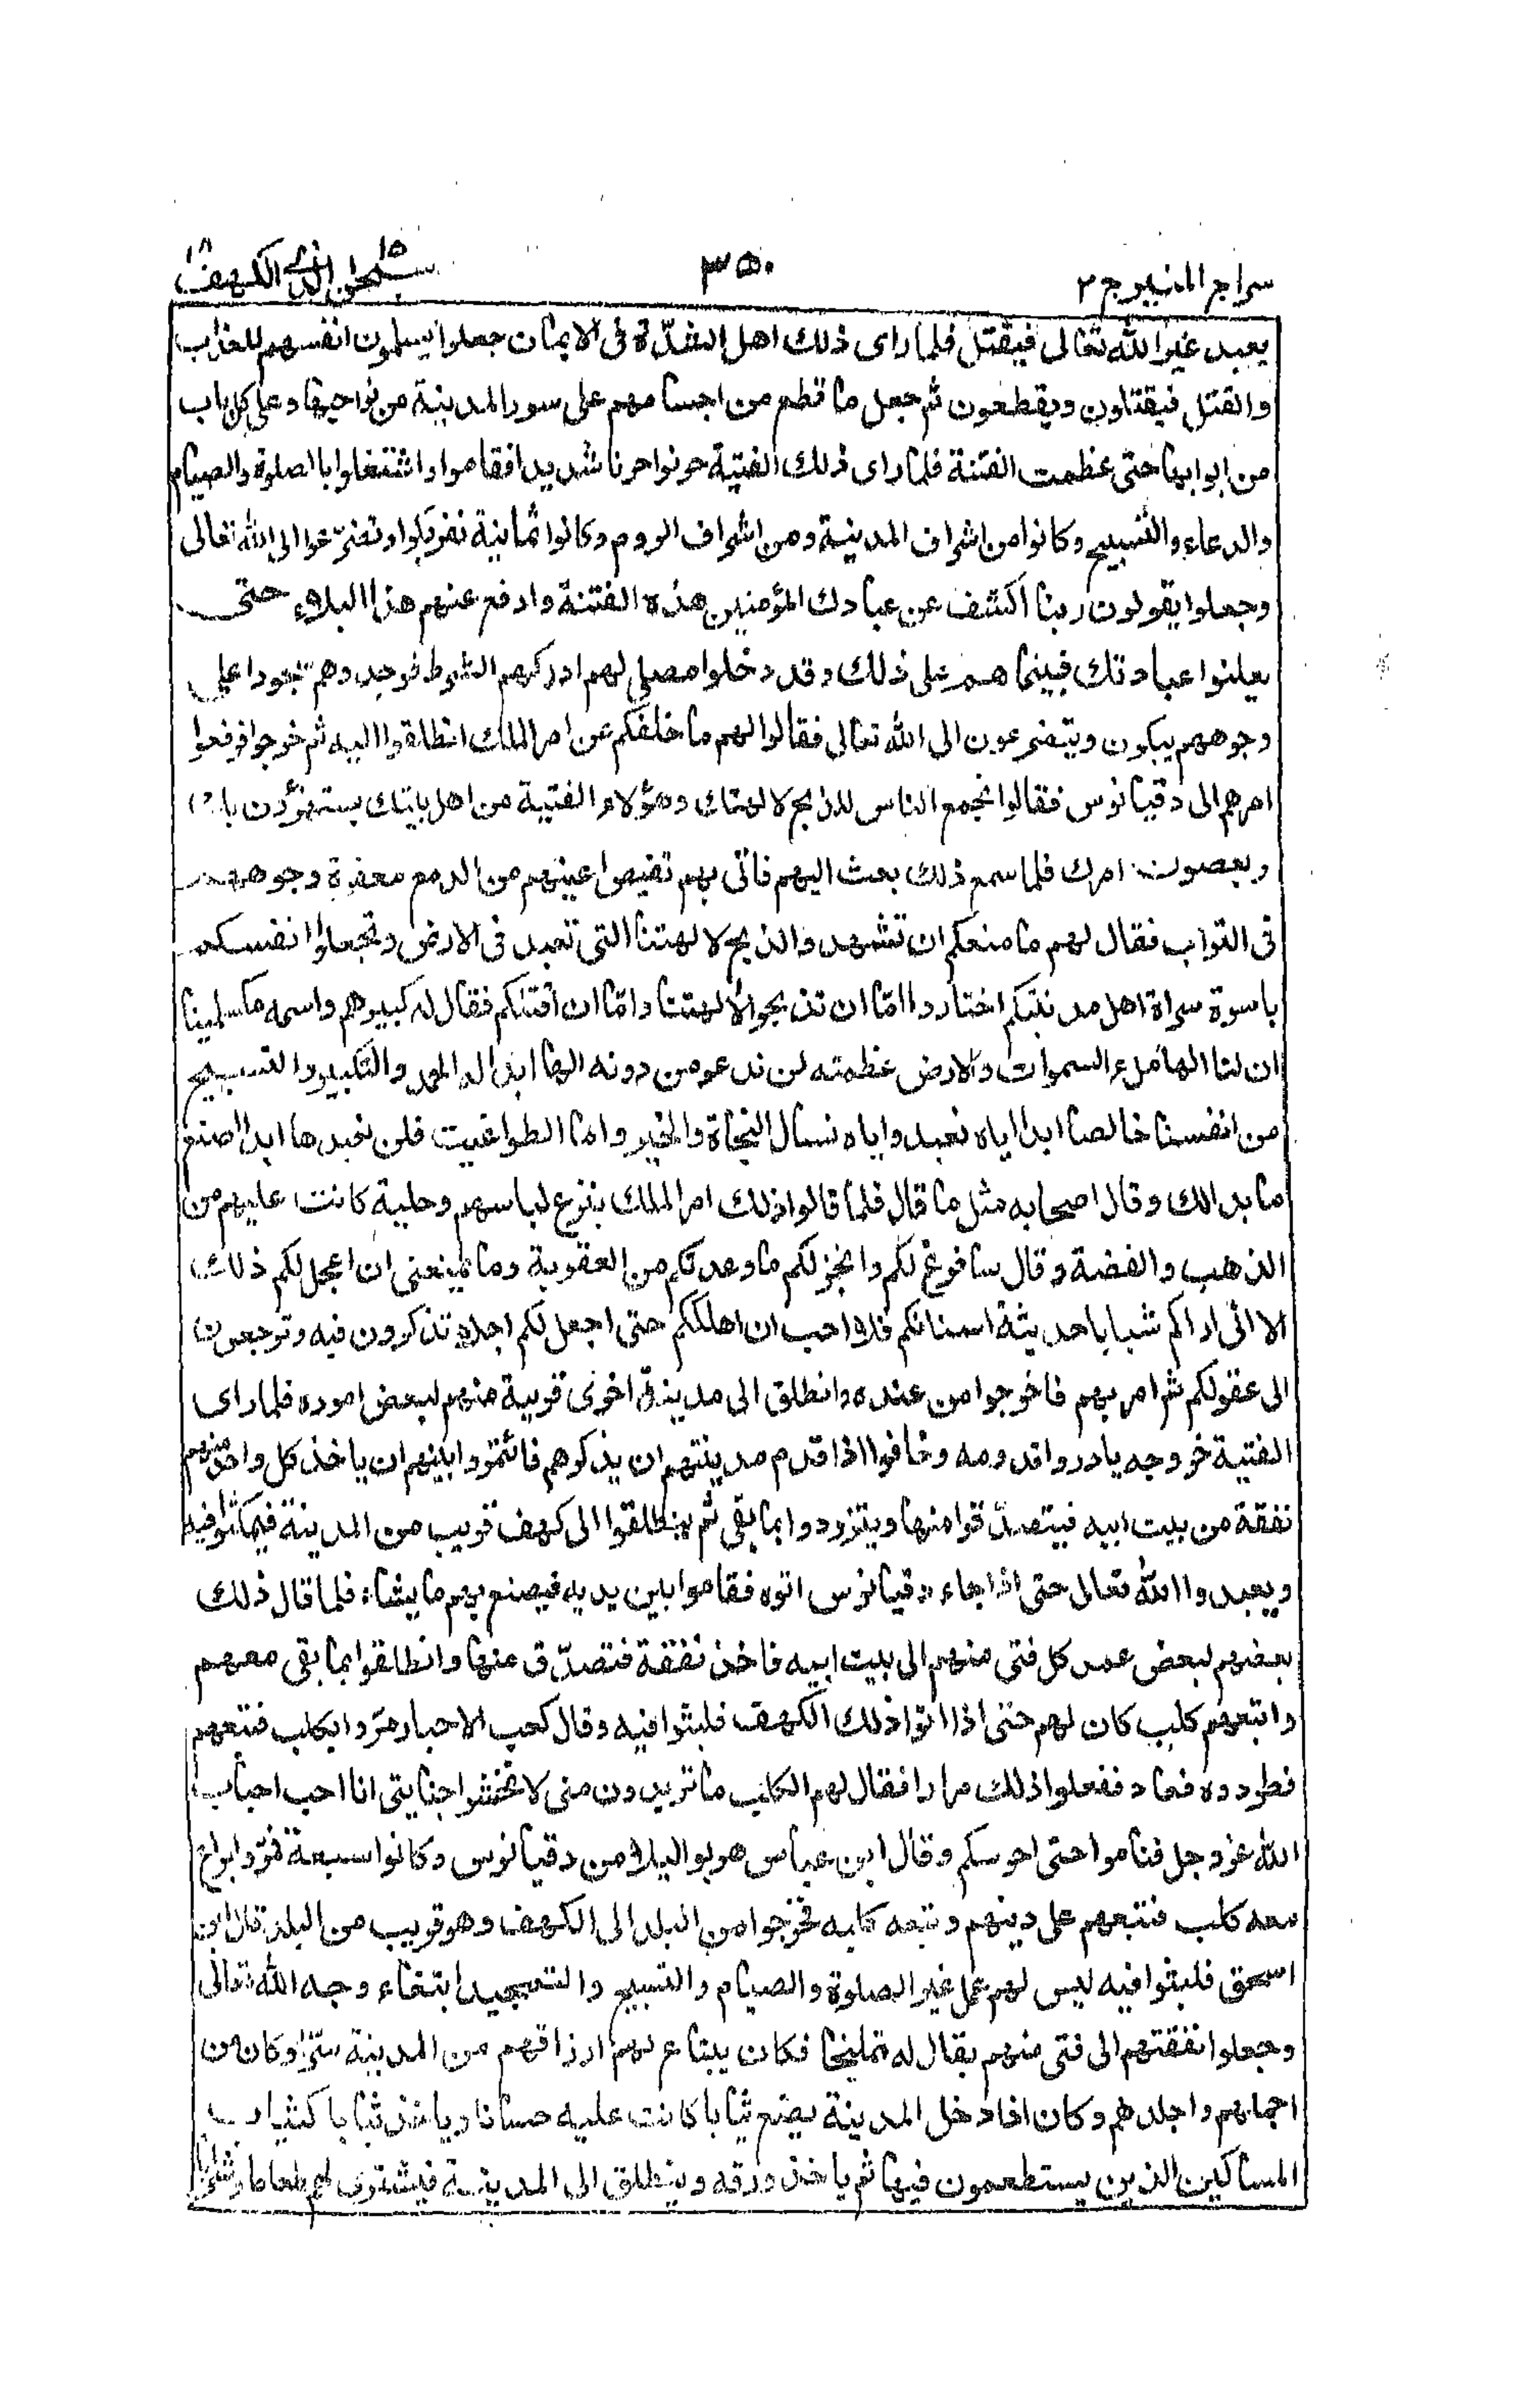 سراج المنير ج ٢
٣٥٠
سبحن الذى ١٥ الكهف ١٨
يعبد غير الله تعالى فيقتل فلما راى ذلك اهل الشدّة فى الايمان جعلوا يسلمون انفسهم للعذاب
والقتل فيقتلون ويقطعون ثم جعل ما قطع من اجسامهم على سور المدينة من نواحيها وعلى كل باب
من ابوابها حتى عظمت الفتنة فلما راى ذلك الفتية حزنوا حزنا شديدا فقاموا واشتغلوا بالصلوة والصيام
والدعاء والتسبيح وكانوا من اشراف المدينة ومن اشراف الروم وكانوا ثمانية نفر بكوا وتضرّعوا الى الله تعالى
وجعلوا يقولون ربنا اكشف عن عبادك المؤمنين هذه الفتنة وادفع عنهم هذا البلاء حتى
يعلنوا عبادتك فبينما هم على ذلك وقد دخلوا مصلى لهم ادركهم الشرط فوجدوهم سجودا على
وجوههم يبكون ويتضرعون الى الله تعالى فقالوا لهم ما خلفكم عن امر الملك انطلقوا اليه ثم خرجوا فرفعوا
امرهم الى دقيانوس فقالوا نجمع الناس للذبح لالهتك وهؤلاء الفتية من اهل بيتك يستهزؤن بك
ويعصون امرك فلما سمع ذلك بعث اليهم فاتى بهم تفيض اعينهم من الدمع معفرة وجوههم
فى التراب فقال لهم ما منعكم ان تشهدوا الذبح لالهتنا التى تعبد فى الارض وتجعلوا انفسكم
باسوة سراة اهل مدينتكم اختاروا امّا ان تذبحوا لالهتنا وامّا ان اقتلكم فقال له كبيرهم واسمه مكسلمينا
ان لنا الها ملء السموات والارض عظمته لن ندعو من دونه الها ابدا له الحمد والتكبير والتسبيح
من انفسنا خالصا ابدا اياه نعبد واياه نسال النجاة والخير واما الطواغيت فلن نعبدها ابدا اصنع
ما بدا لك وقال اصحابه مثل ما قال فلما قالوا ذلك امر الملك بنزع لباسهم وحلية كانت عليهم من
الذهب والفضة وقال سافرغ لكم وانجز لكم ما وعدتكم من العقوبة وما يمنعنى ان اعجل لكم ذلك
الا انى اراكم شبابا حديثة اسنانكم فلا احب ان اهلككم حتى اجعل لكم اجلا تذكرون فيه وترجعون
الى عقولكم ثم امر بهم فاخرجوا من عنده وانطلق الى مدينة اخرى قريبة منهم لبعض اموره فلما راى
الفتية خروجه بادروا قدومه وخافوا اذا قدم مدينتهم ان يذكرهم فائتمروا بينهم ان ياخذ كل واحد منهم
نفقة من بيت ابيه فيتصدّقوا منها ويتزودوا بما بقى ثم ينطلقوا الى كهف قريب من المدينة فيمكثوا فيه
ويعبدوا الله تعالى حتى اذا جاء دقيانوس اتوه فقاموا بين يديه فيصنع بهم ما يشاء فلما قال ذلك
بعضهم لبعض عمد كل فتى منهم الى بيت ابيه فاخذ نفقة فتصدّق منها وانطلقوا بما بقى معهم
واتبعهم كلب كان لهم حتى اذا اتوا ذلك الكهف فلبثوا فيه وقال كعب الاحبار مرّوا بكلب فتبعهم
فطردوه فعاد ففعلوا ذلك مرارا فقال لهم الكلب ما تريدون منى لا تخشوا جنايتى انا احب احباب
الله عز وجل فناموا حتى احرسكم وقال ابن عباس هربوا ليلا من دقيانوس وكانوا سبعة فمروا براع
معه كلب فتبعهم على دينهم وتبعه كلبه فخرجوا من البلد الى الكهف وهو قريب من البلد قال ابن
اسحق فلبثوا فيه ليس لهم عمل غير الصلوة والصيام والتسبيح والتحميد ابتغاء وجه الله تعالى
وجعلوا نفقتهم الى فتى منهم يقال له تمليخا فكان يبتاع لهم ارزاقهم من المدينة سرّا وكان من
اجملهم واجلدهم وكان اذا دخل المدينة يضع ثيابا كانت عليه حسانا وياخذ ثيابا كثياب
المساكين الذين يستطعمون فيها ثم ياخذ ورقه وينطلق الى المدينة فيشترى لهم طعاما وشرابا